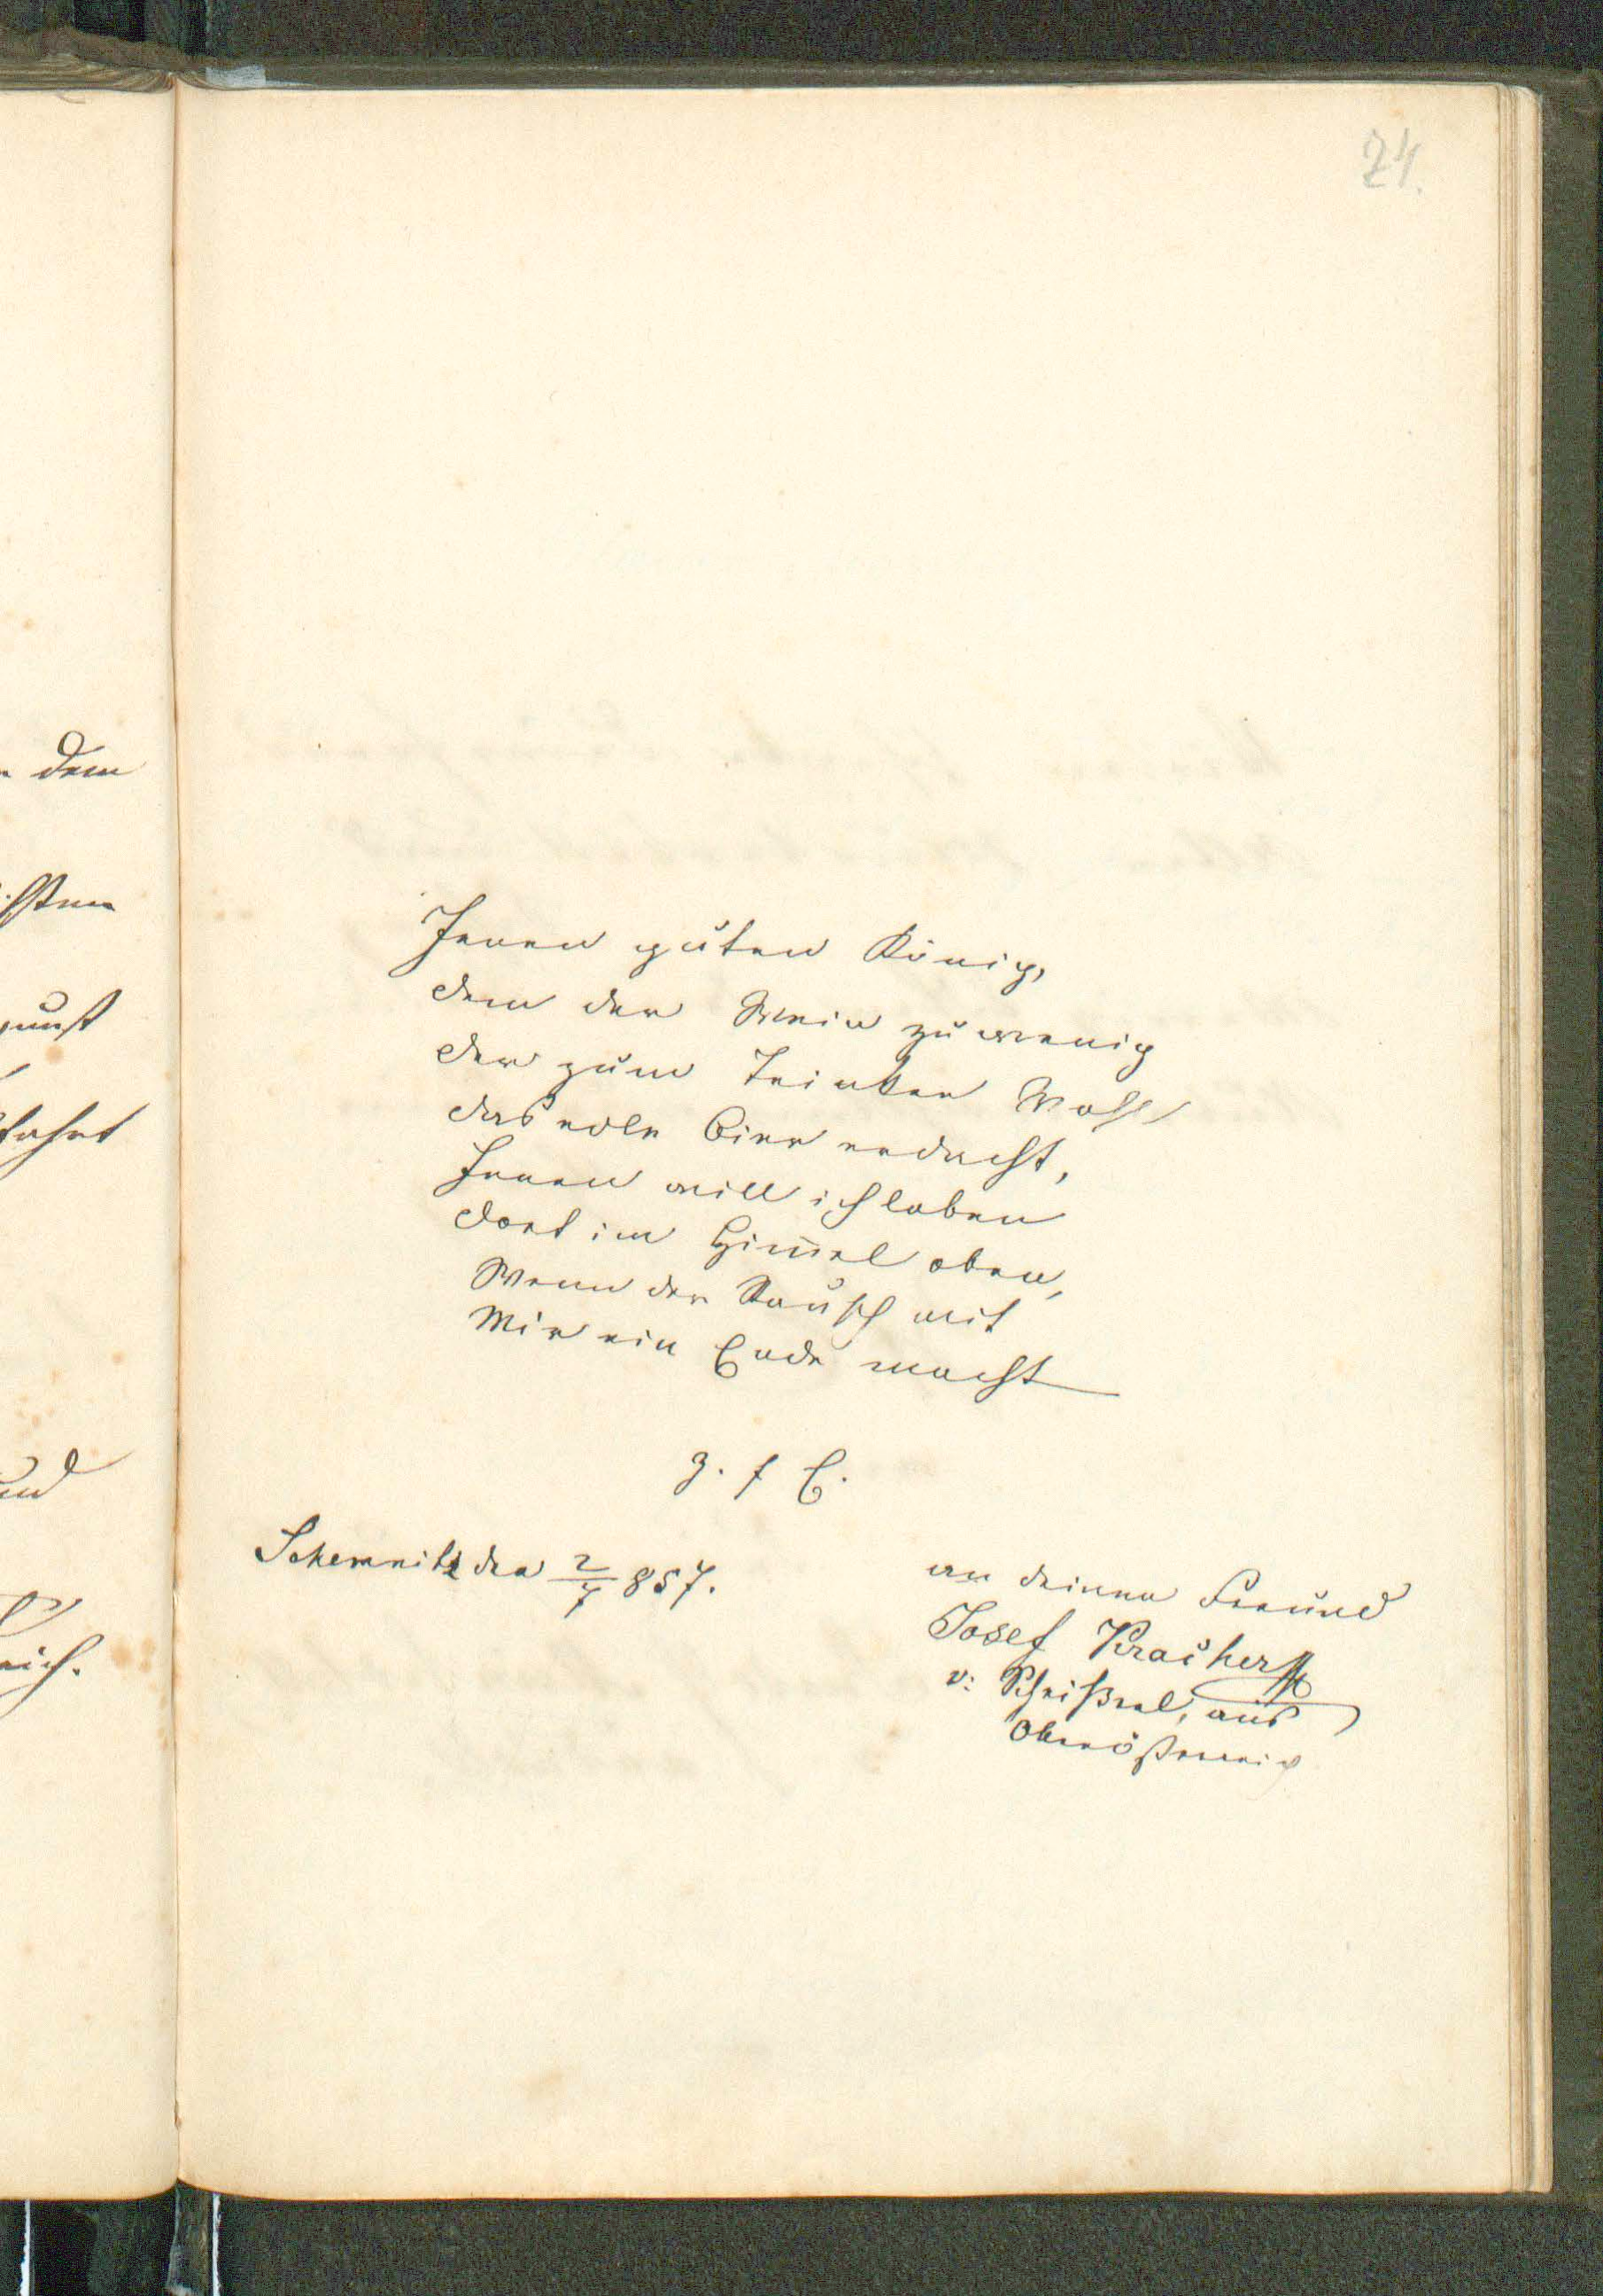 24.
dem
Jenen guten König,
dem der Wein zu wenig
der zum Trinker Wohl
das edle Bier erdacht,
Jenen will ich loben
dort im Him̅el oben,
Wenn der Rausch mit
Mir ein Ende macht
z. f E.
Schemnitz den 2/7 857.
an deinen Freund
Josef
v: aus
Oberösterreich